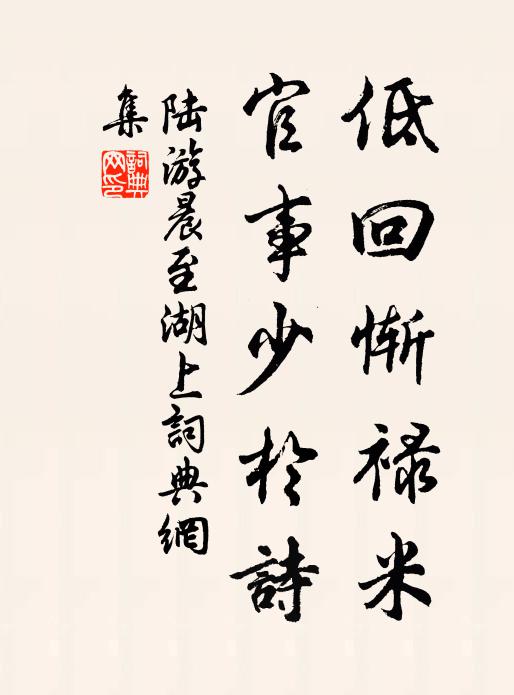 低回慚禄米
官事少於詩
陆游晨至湖上詞典網
集
詞典網印